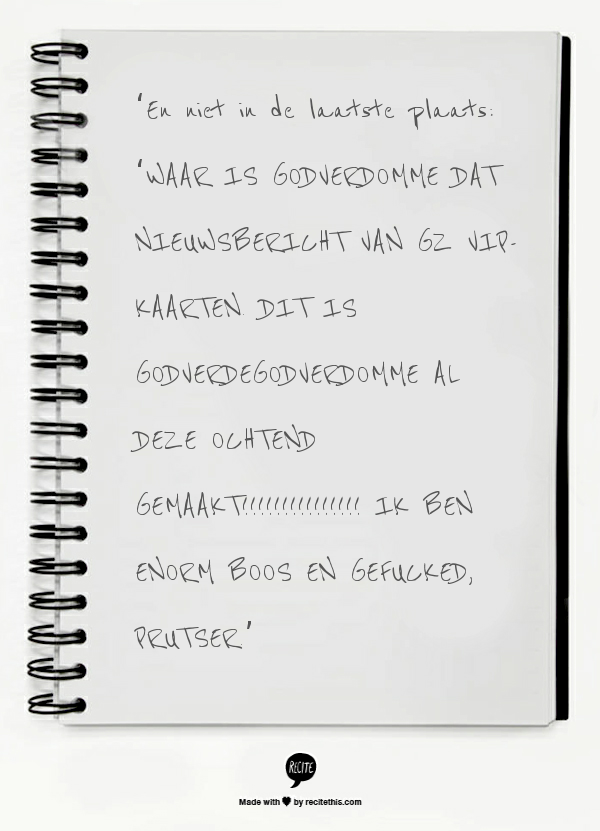 'En niet in de laatste plaats:
'WAAR IS GODVERDOMME DAT
NIEUWSBERICHT VAN GZ VIP-
KAARTEN. DIT IS
GODVERDEGODVERDOMME AL
DEZE OCHTEND
GEMAAKT!!!!!!!!!!!!!!! IK BEN
ENORM BOOS EN GEFUCKED,
PRUTSER'
RECITE
Made with ♥ by recitethis.com